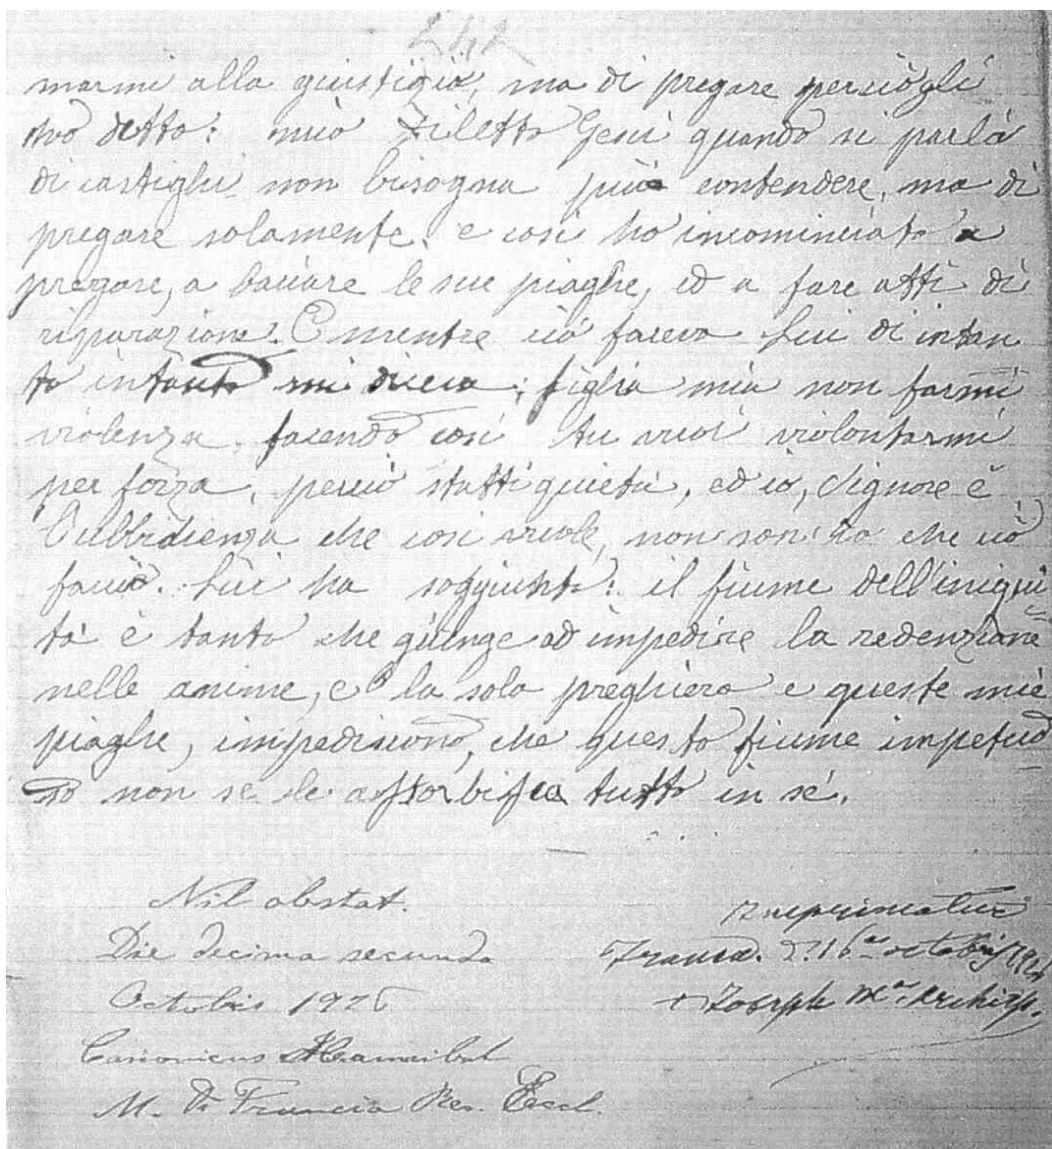 242
marmi alla giustizia, ma di pregare perciò gli
ho detto: mio Diletto Gesù quando si parla
di castighi non bisogna più contendere, ma di
pregare solamente. e così ho incominciato a
pregare, a baciare le sue piaghe, ed a fare atti di
riparazione. E mentre ciò faceva Lui di intan
to intanto mi diceva: figlia mia non farmi
violenza, facendo così tu vuoi violentarmi
per forza, perciò statti quieta, ed io, Signore è
l'ubbidienza che così vuole, non son io che ciò
faccio. Lui ha soggiunto: il fiume dell'iniqui
tà è tanto che giunge ad impedire la redenzione
nelle anime, e la sola preghiera e queste mie
piaghe, impediscono, che questo fiume impetuo
so non se le assorbisca tutto in sé.
Nil obstat.
Die decima secunda
Octobris 1926
Canonicus Hannibal
M. Di Francia Rev. Eccl.
Imprimatur
16 octobris 1926
+ Joseph M. Archiep.